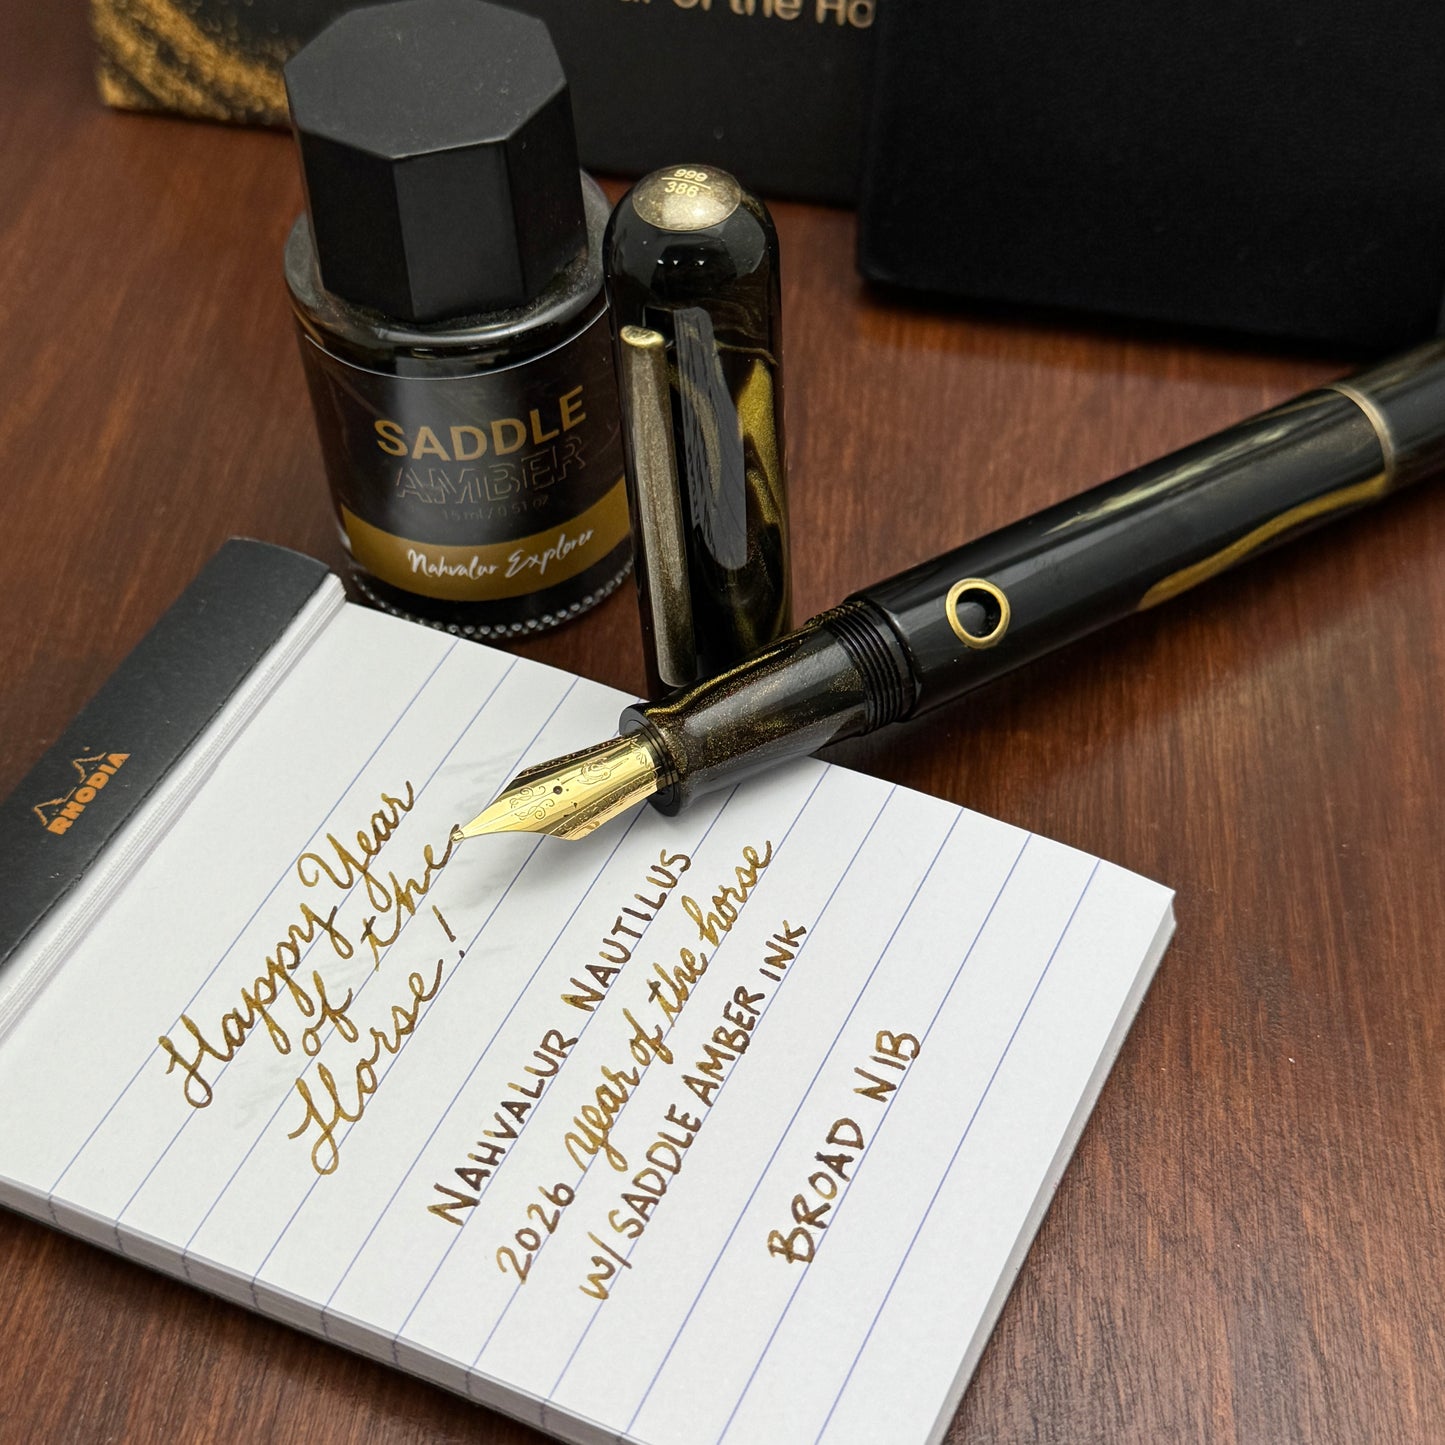 of the Ho
999
386
SADDLE
AMBER
15 ml / 0.51 oz
Nahvalur Explorer
RHODIA
Happy Year
of the
Horse!
NAHVALUR NAUTILUS
2026 year of the horse
w/ SADDLE AMBER INK
BROAD NIB